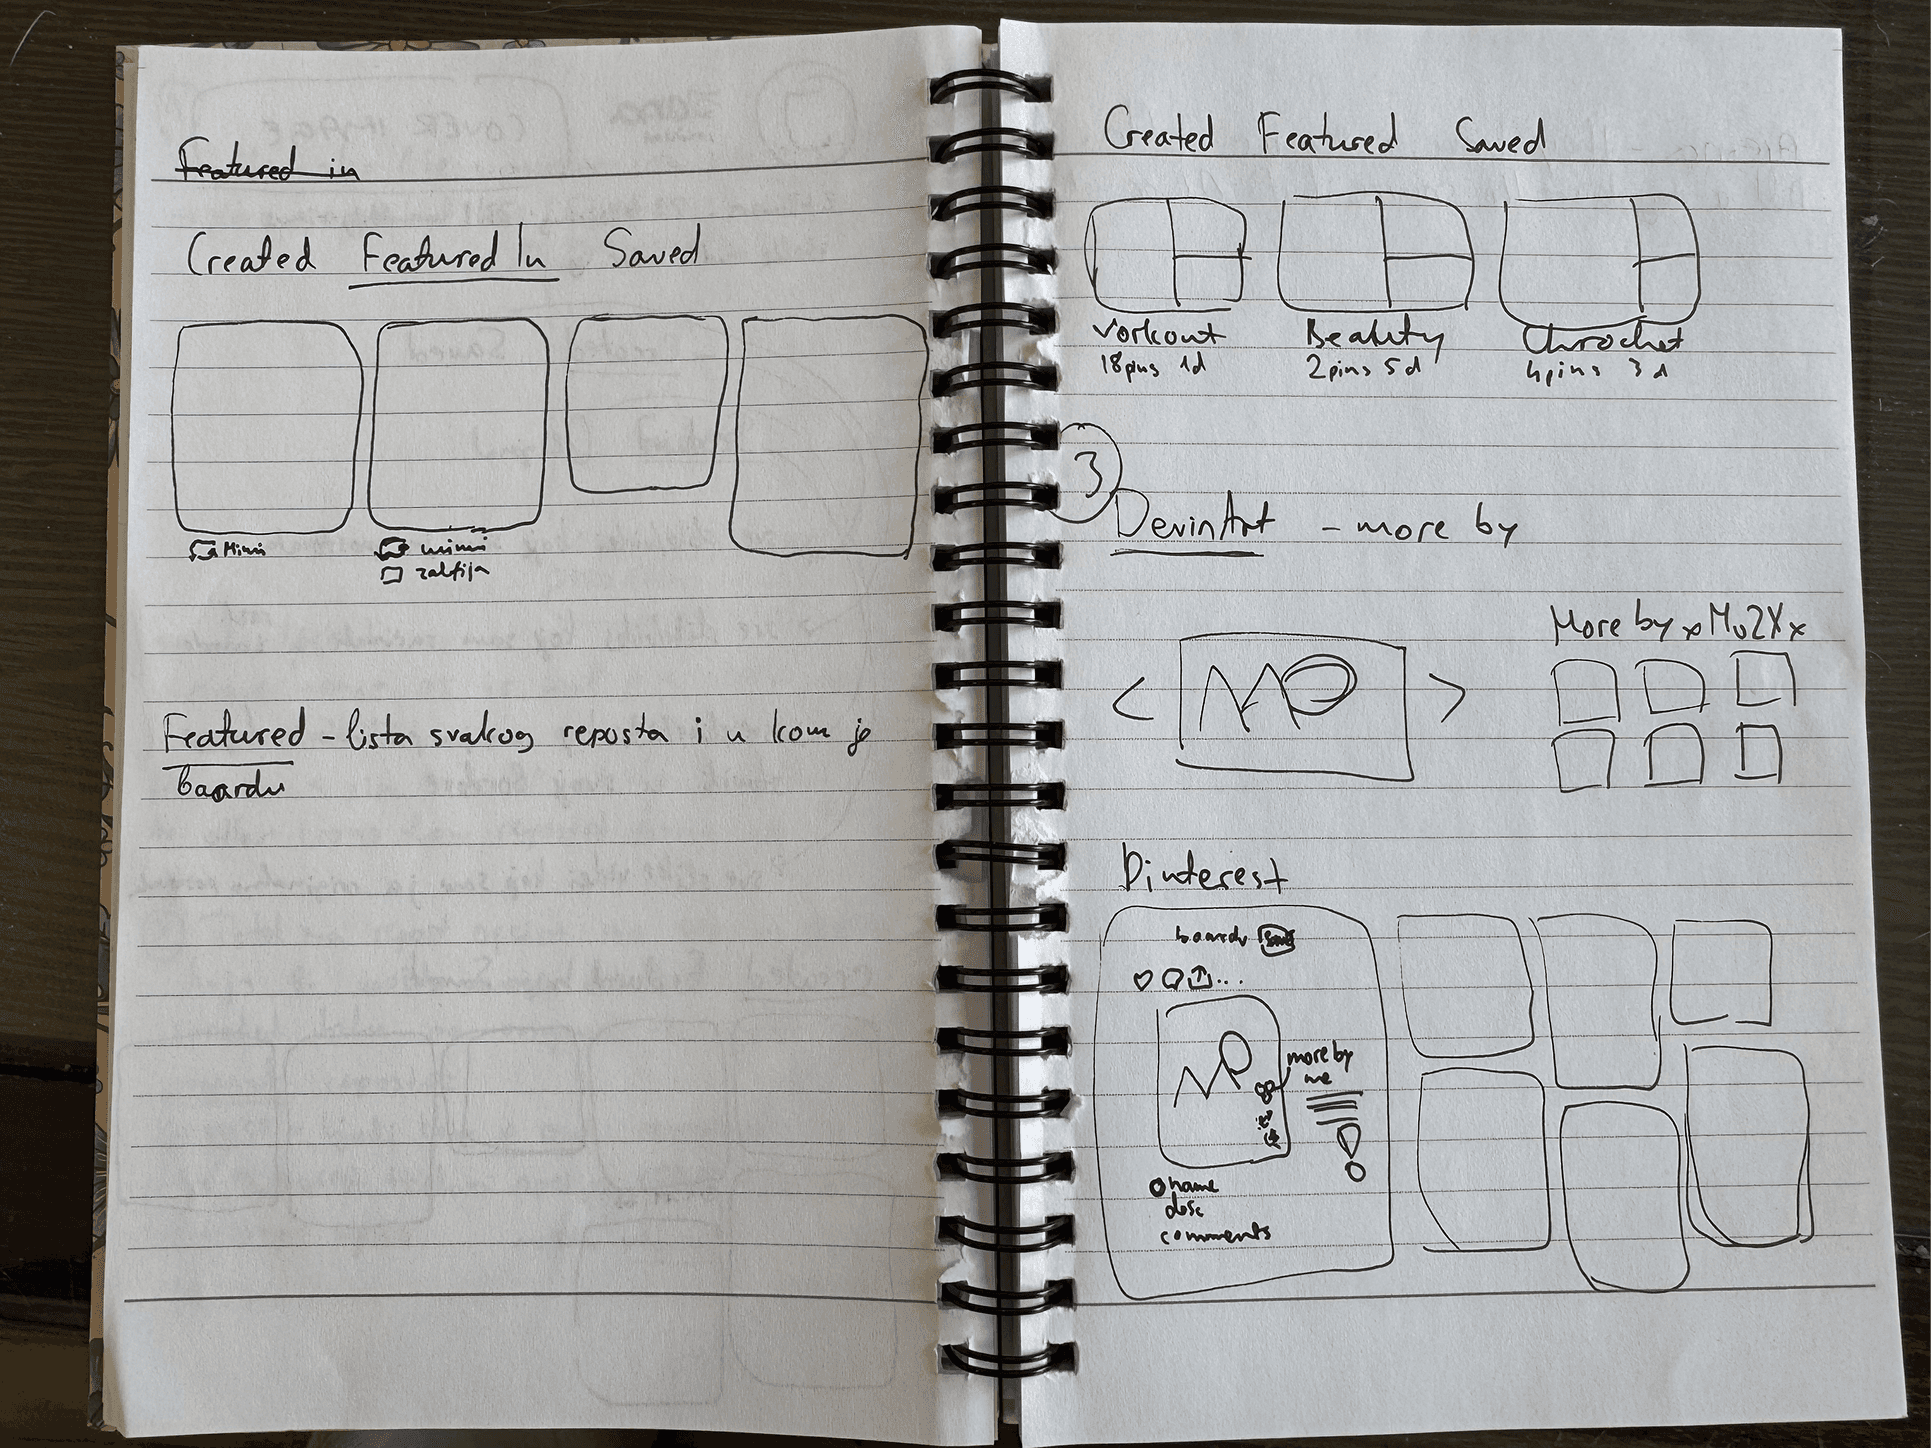 Featured in
Created Featured In Saved
Mimi
mimi
Featured - lista svakog reposta i u kom je
boardu
Created Featured Saved
Workout
18 pins 1d
Beauty
2 pins 5d
Chrochet
4 pins 3d
3
DevinArt - more by
< >
More by xMu2Xx
Pinterest
boards save
...
more by
me
name
desc
comments